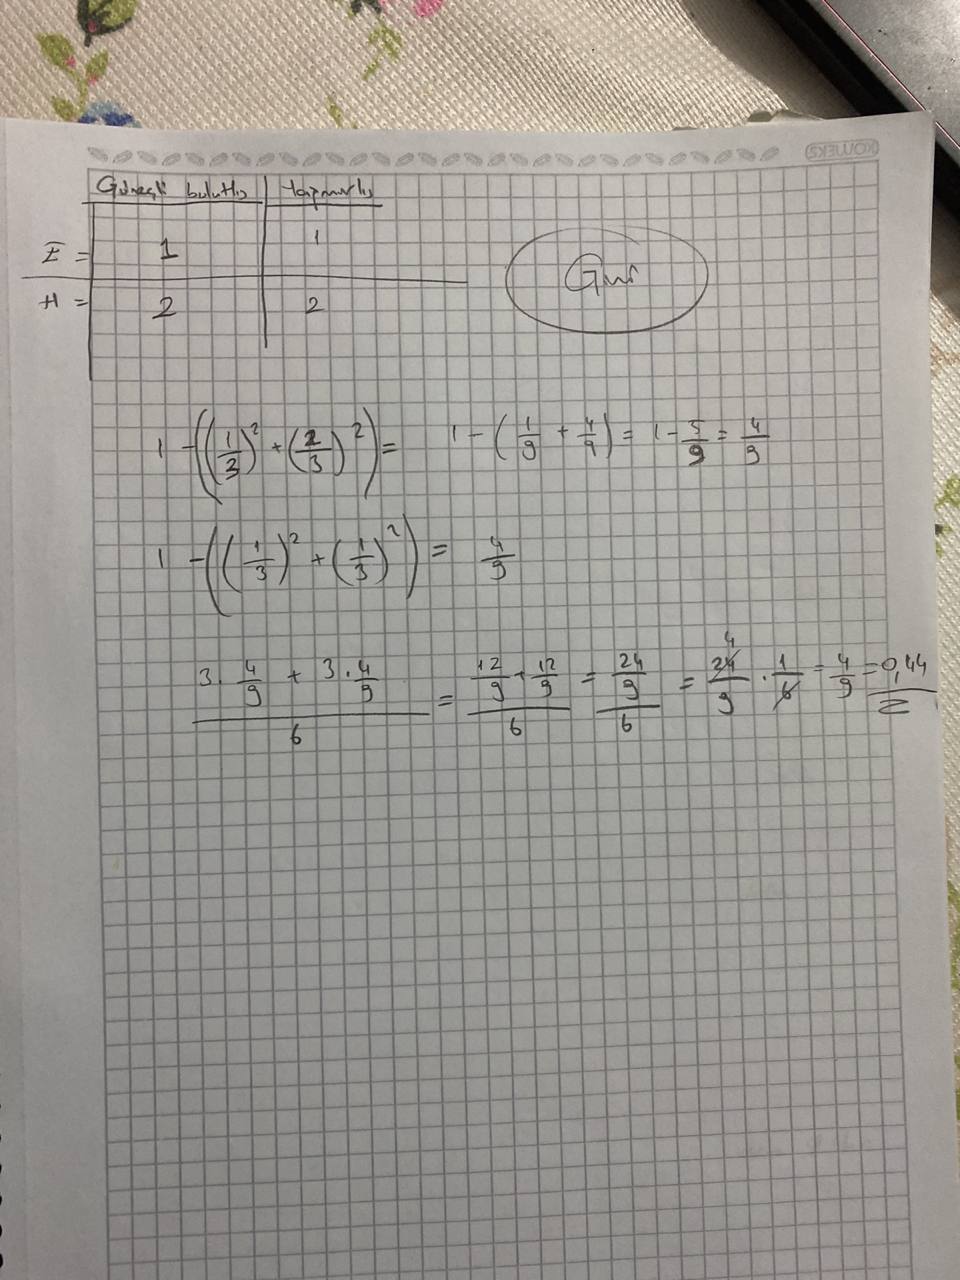 Güneşli bulutlu yağmurlu
E = 1 1
H = 2 2
Gini
1 - ((1/3)² + (2/3)²) = 1 - (1/9 + 4/9) = 1 - 5/9 = 4/9
1 - ((1/3)² + (1/3)²) = 4/9
(3 · 4/9 + 3 · 4/9)/6 = (12/9 + 12/9)/6 = (24/9)/6 = 24/9 · 1/6 = 4/9 = 0,44